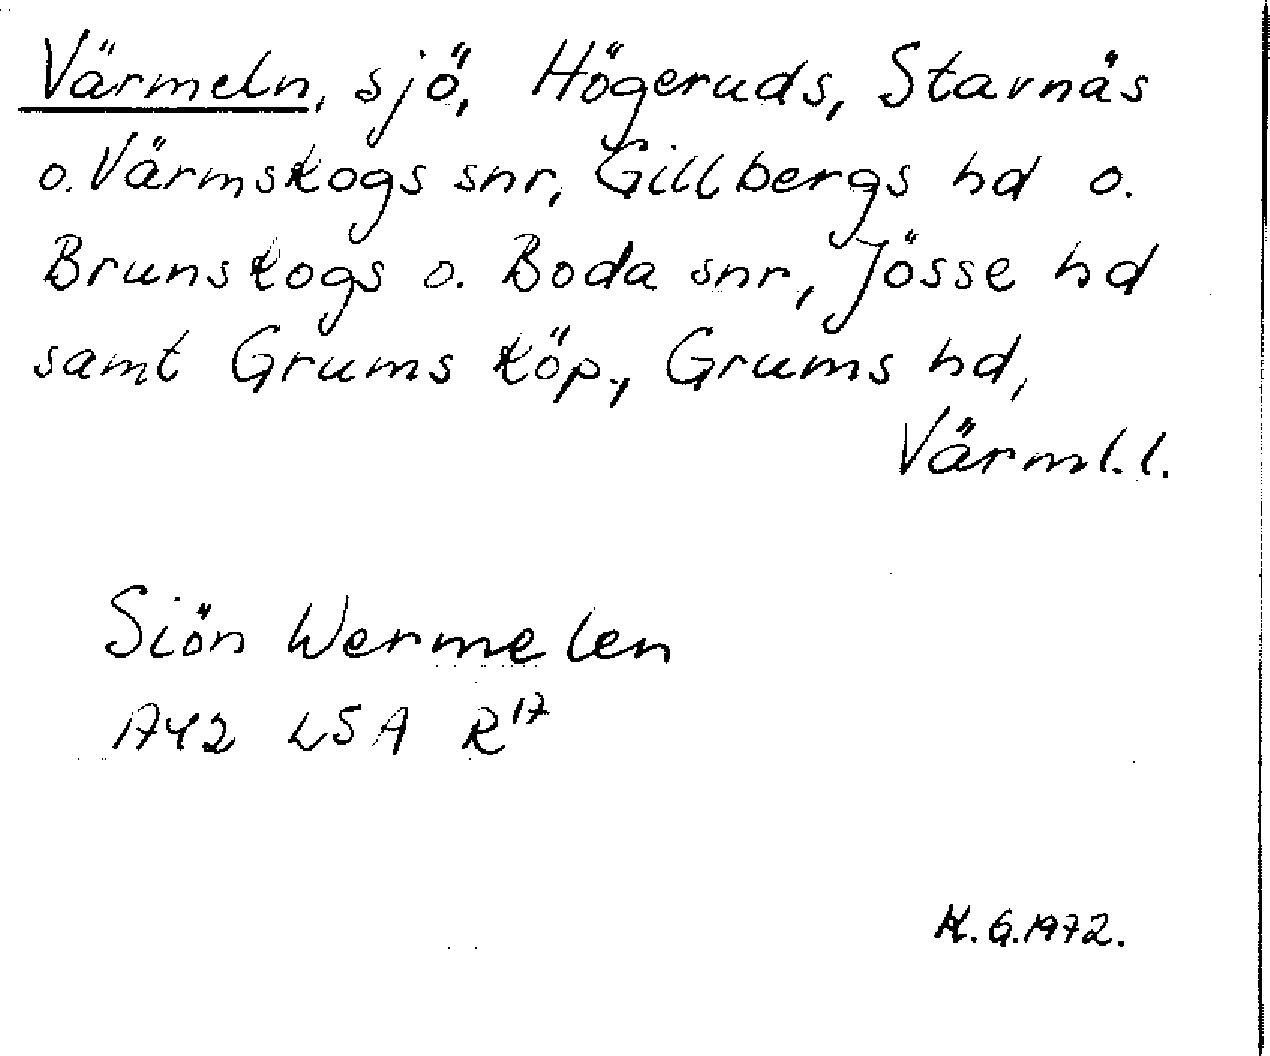 Värmeln, sjö, Högeruds, Stavnäs
o. Värmskogs snr, Gillbergs hd o.
Brunskogs o. Boda snr, Jösse hd
samt Grums köp., Grums hd,
Värml. l.
Siön Wermelen
1742 LSA R17
K. G. 1972.